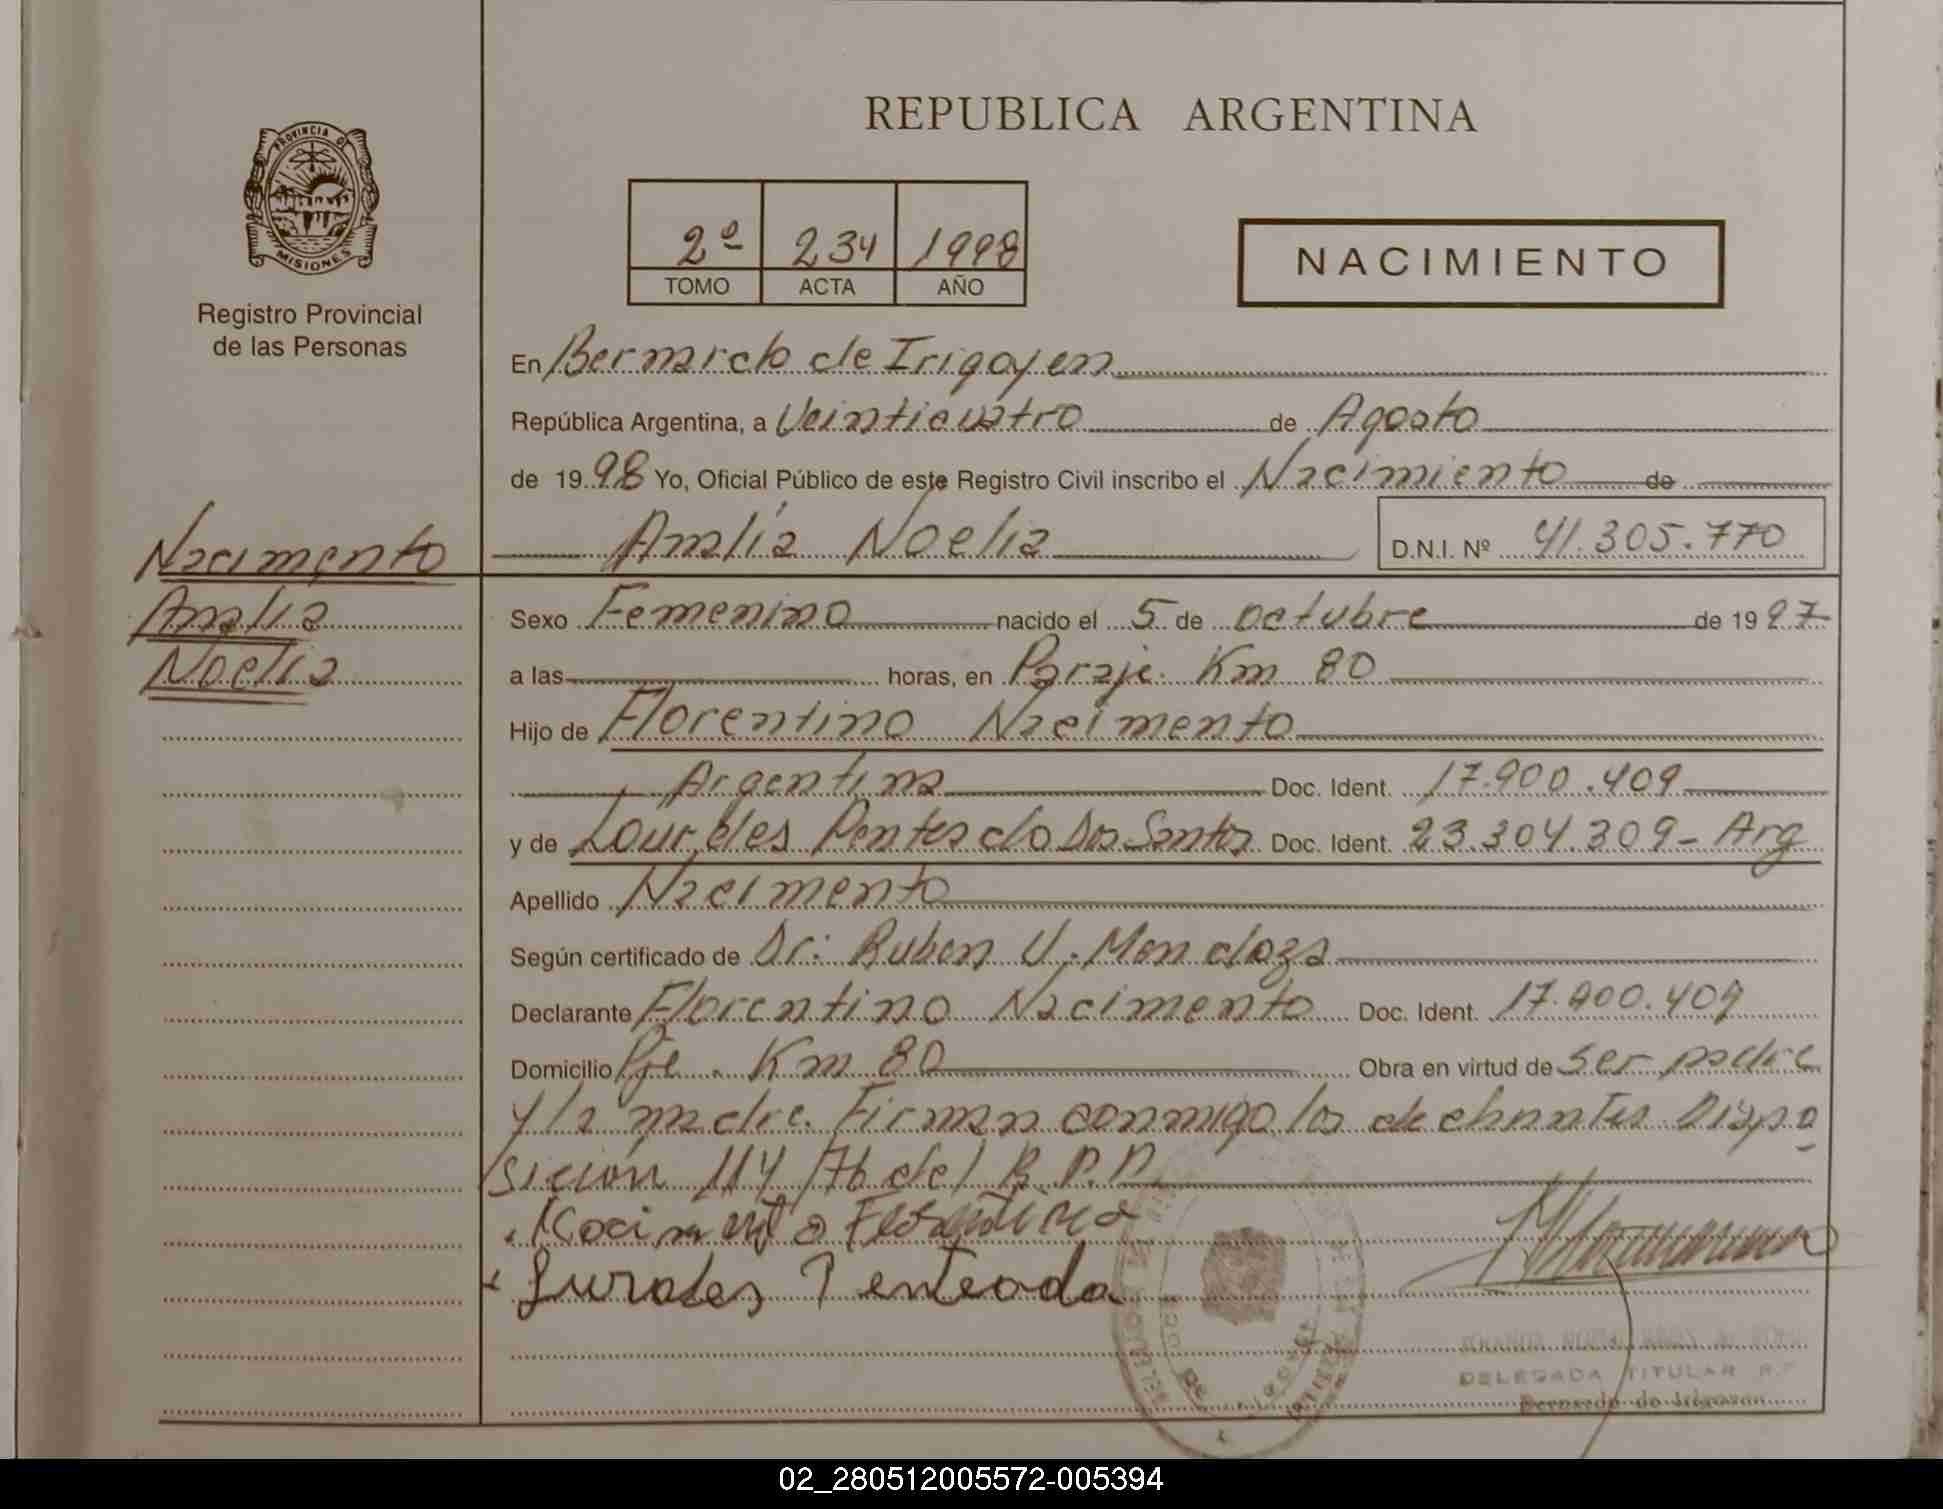 REPUBLICA ARGENTINA
PROVINCIA DE
MISIONES
Registro Provincial
de las Personas
2º 234 1998
TOMO ACTA AÑO
NACIMIENTO
En Bernardo de Irigoyen
República Argentina, a Veinticuatro de Agosto
de 1998 Yo, Oficial Público de este Registro Civil inscribo el Nacimiento de
Analía Noelia D.N.I. Nº 41.305.770
Nacimento
Analia
Noelia
Sexo Femenino nacido el 5 de octubre de 1997
a las horas, en Paraje Km 80
Hijo de Florentino Nacimento
Argentina Doc. Ident. 17.900.409
y de Lourdes Penteado Dos Santos Doc. Ident. 23.304.309- Arg
Apellido Nacimento
Según certificado de Dr: Ruben V. Mendoza
Declarante Florentino Nacimento Doc. Ident. 17.900.409
Domicilio Pje. Km 80 Obra en virtud de Ser padre
y la madre. Firman conmigo los declarantes. Dispo
sición 114/76 del R.P.P.
Lurdes Penteada
DELEGADA TITULAR R.P
Bernardo de Irigoyen
02_280512005572-005394